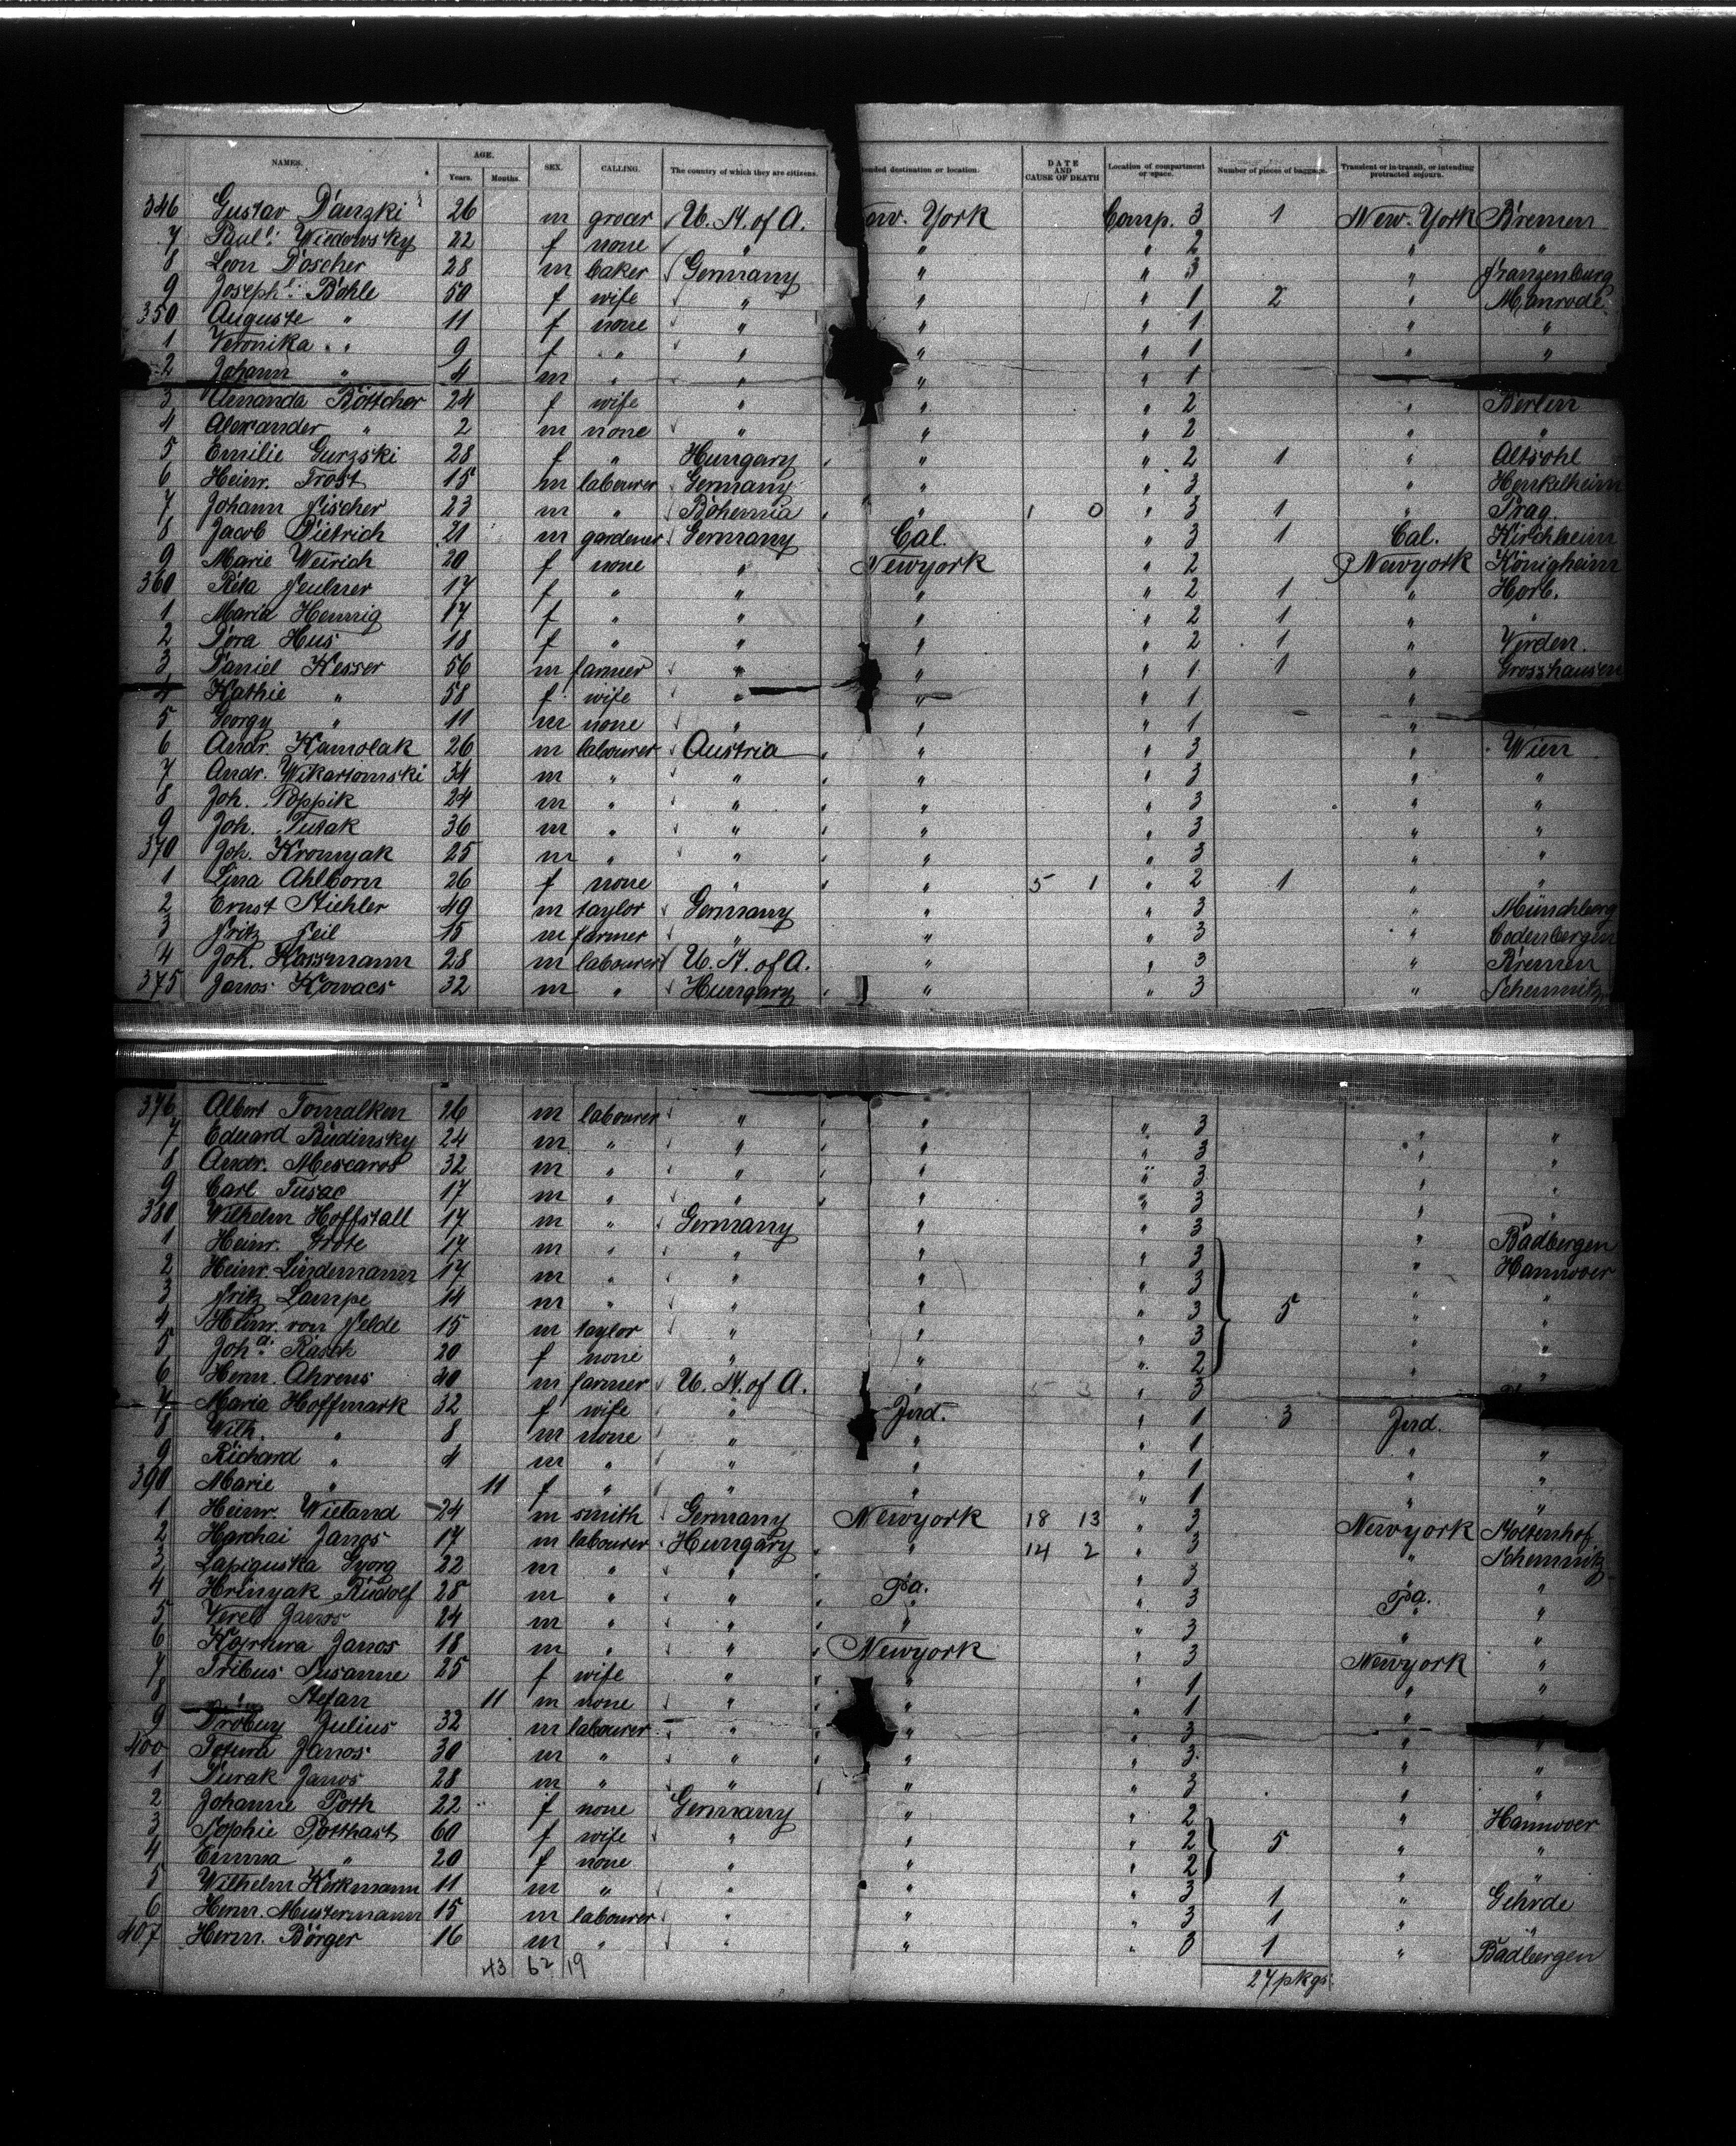 NAMES. AGE. Years. Months. SEX. CALLING. The country of which they are citizens. ended destination or location. DATE AND CAUSE OF DEATH Location of compartment or space. Number of pieces of baggage. Transient or in transit, or intending protracted sojourn.
346 Gustav Danzki 26 m grocer U. St. of A. New. York Comp. 3 1 New. York Bremen
7 Paul. Wiedowsky 22 f none " " " 2 " "
8 Leon Döscher 28 m baker Germany " " 3 "
9 Joseph. Böhle 50 f wife " " " 1 2 "
350 Auguste " 11 f none " " " 1 " "
1 Veronika " 9 f " " " " 1 " "
2 Johann " 4 m " " " " 1 "
3 Amanda Böttcher 24 f wife " " " 2 " Berlin
4 Alexander " 2 m none " " " 2 " "
5 Emilie Gurzski 28 f " Hungary " " 2 1 " Altsohl
6 Heinr. Trost 15 m labourer Germany " " 3 " Henkelheim
7 Johann Fischer 23 m " Bohemia " 1 0 " 3 1 " Prag.
8 Jacob Dietrich 21 m gardener Germany Cal. " 3 1 Cal. Kirchheim
9 Marie Weirich 20 f none " Newyork " 2 Newyork Königheim
360 Rosa Feulner 17 f " " " " 2 1 " Horb.
1 Maria Hennig 17 f " " " " 2 1 " "
2 Dora Hus 18 f " " " " 2 1 " Verden.
3 Daniel Kesser 56 m farmer " " " 1 1 " Grosshausen
4 Kathie " 58 f wife " " " 1 "
5 Georg " 11 m none " " " 1 "
6 Andr. Kamolak 26 m labourer Austria " " 3 " Wien
7 Andr. Wikartomski 34 m " " " " 3 " "
8 Joh. Poppik 24 m " " " " 3 " "
9 Joh. Tusak 36 m " " " " 3 " "
370 Joh. Kromyak 25 m " " " " 3 " "
1 Lina Ahlborn 26 f none " " 5 1 " 2 1 " "
2 Ernst Stiehler 49 m taylor Germany " " 3 " Münchberg
3 Fritz Feil 15 m farmer " " " 3 " Codenbergen
4 Joh. Hassmann 28 m labourer U. St. of A. " " 3 " Bremen
375 Janos Kowacs 32 m " Hungary " " 3 " Schemnitz
376 Albert Tomalken 26 m labourer " " " 3 " "
7 Eduard Budinsky 24 m " " " " 3 " "
8 Andr. Mescaros 32 m " " " " 3 " "
9 Carl Tusac 17 m " " " " 3 " "
380 Wilhelm Hoffstall 17 m " Germany " " 3 " Badbergen
1 Heinr. Grote 17 m " " " " 3 " Hannover
2 Heinr. Lindemann 17 m " " " " 3 " "
3 Fritz Lampe 14 m " " " " 3 5 " "
4 Heinr. von Felde 15 m taylor " " " 3 " "
5 Joh.a Rasch 20 f none " " " 2 " "
6 Herm. Ahrens 40 m farmer U. St. of A. " " 3 "
7 Maria Hoffmark 32 f wife " Ind. " 1 3 Ind.
8 Wilh. " 8 m none " " " 1 " "
9 Richard " 4 m " " " " 1 " "
390 Marie " 11 f " " " " 1 " "
1 Heinr. Wieland 24 m smith Germany Newyork 18 13 " 3 Newyork Moltenhof
2 Harchai Janos 17 m labourer Hungary " 14 2 " 3 " Schemnitz
3 Lapiguska Gyorg 22 m " " " " 3 " "
4 Hrinyak Rudolf 28 m " " Pa. " 3 Pa. "
5 Vereb Janos 24 m " " " " 3 " "
6 Janos 18 m " " Newyork " 3 Newyork "
7 Tribus Susanne 25 f wife " " " 1 " "
8 " Stefan 11 m none " " " 1 "
9 Drobny Julius 32 m labourer " " " 3 " "
400 Totura Janos 30 m " " " " 3 " "
1 Durak Janos 28 m " " " " 3 " "
2 Johanne Poth 22 f none Germany " " 2 " Hannover
3 Sophie Potthast 60 f wife " " " 2 5 " "
4 Emma " 20 f none " " " 2 " "
5 Wilhelm Kerkmann 11 m " " " " 3 1 " Gehrde
6 Herm. Mustermann 15 m labourer " " " 3 1 " "
407 Herm. Börger 16 m " " " " 3 1 " Badbergen
43 62 19 27 pkgs.